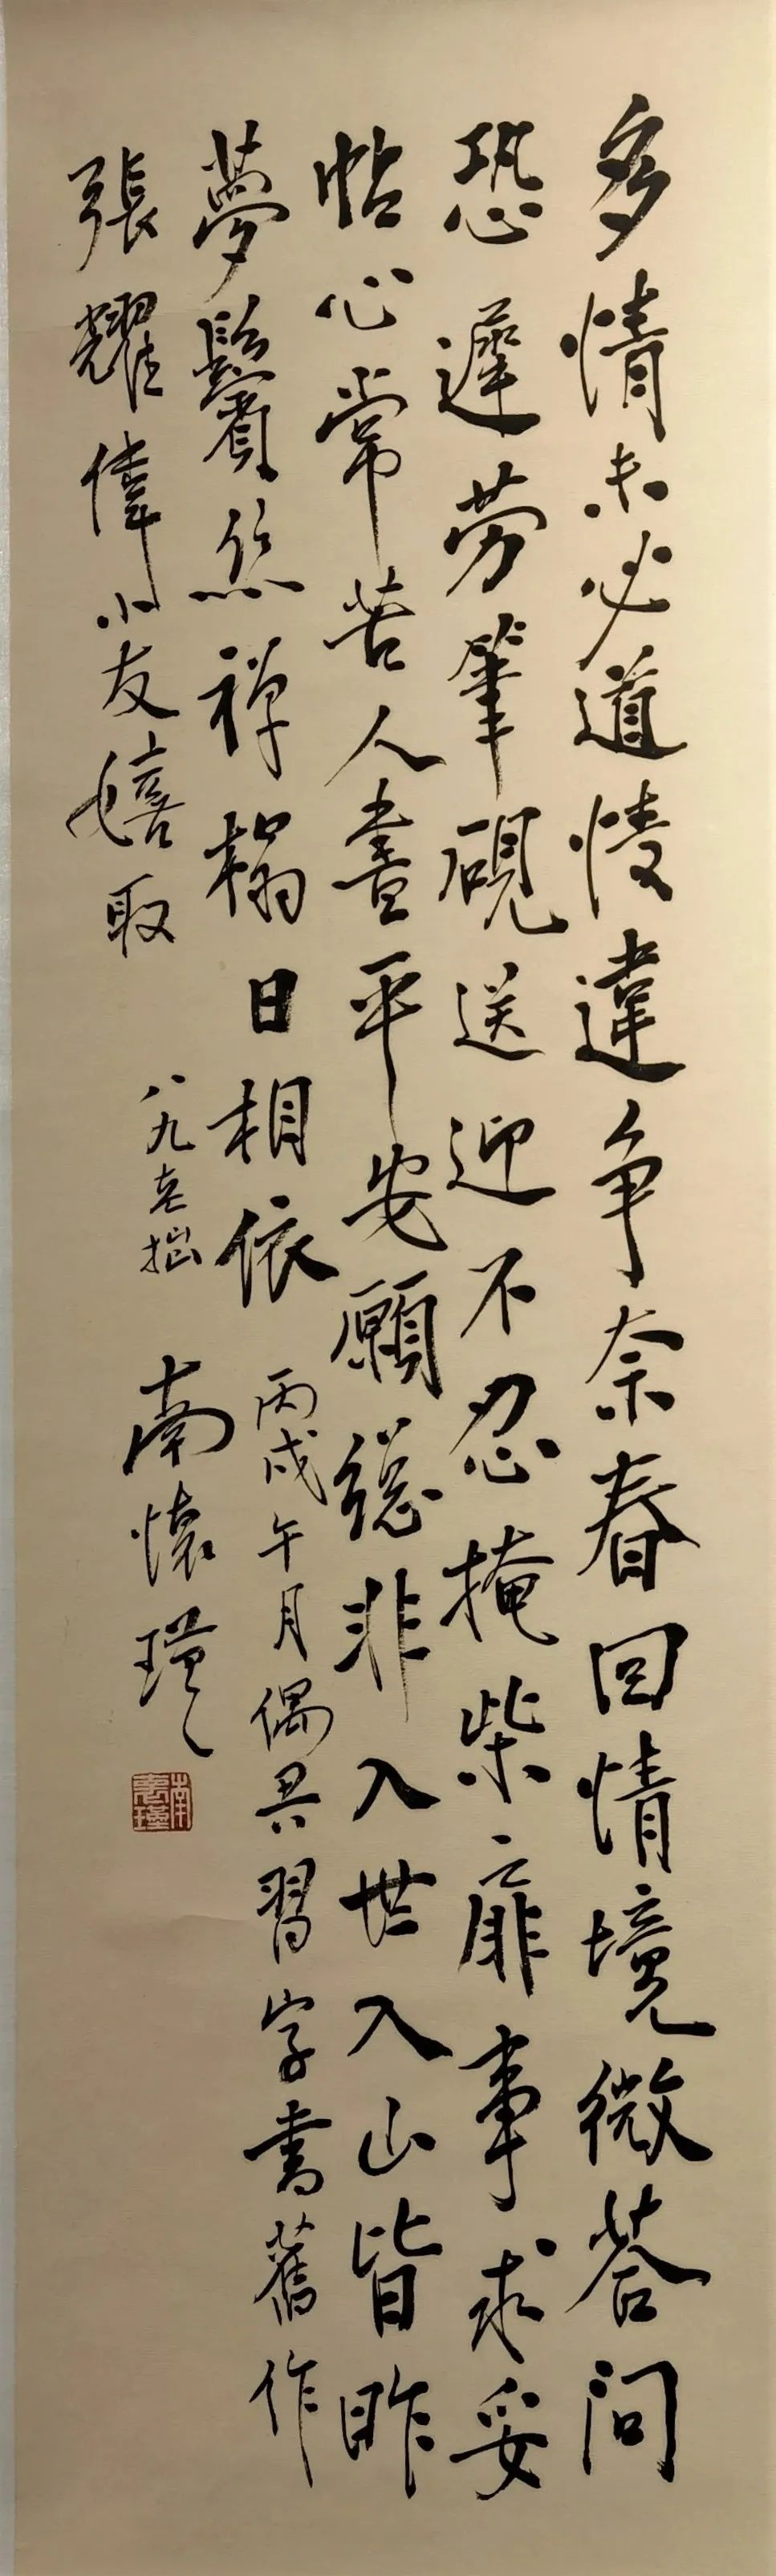 多情未必道情違爭奈春回情境微荅問
恐遲勞筆硯送迎不忍掩柴扉事求妥
帖心常苦人盡平安願總非入世入山皆昨
夢鬢絲禪榻日相依
丙戌午月偶然習字書舊作
張耀偉小友嬉取
八九老拙
南懷瑾
南懷瑾